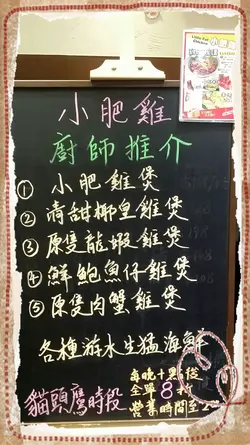 小肥雞
廚師推介
① 小肥雞煲
② 清甜椰皇雞煲
③ 原隻龍蝦雞煲
④ 鮮鮑魚仔雞煲
⑤ 原隻肉蟹雞煲
各種游水生猛海鮮
貓頭鷹時段
每晚十點後
全單8折
營業時間至2